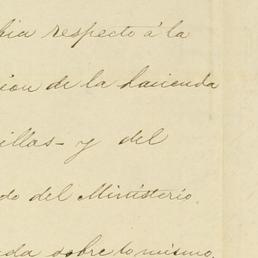 bia respecto á la
ion de la hacienda
illas - y del
do del Ministerio
da sobre lo mismo,